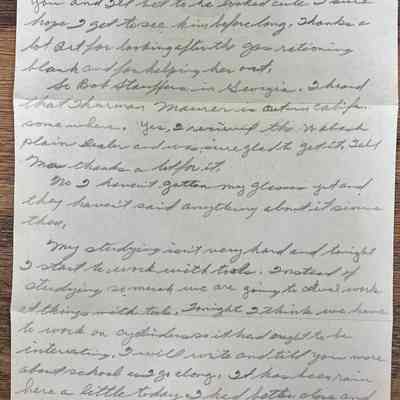 you and I'll bet to he looked cute I sure
hope I get to see him before long. Thanks a
lot Art for looking after the gas rationing
blank and for helping her out.
So Bob Stauffer is in Georgia. I heard
that Tharman Maurer is out in Calif.
somewhere. Yes, I received the Wabash
Plain Dealer and was sure glad to get it. Tell
Mom thanks a lot for it.
No I haven't gotten my glasses yet and
they haven't said anything about it since
then.
My studying isn't very hard and tonight
I start to work with tools. Instead of
studying so much we are going to work
at things with tools. Tonight I think we have
to work on cylinders so it had ought to be
interesting. I will write and tell you more
about school as I go along. It has been rain
here a little today. I had better close and